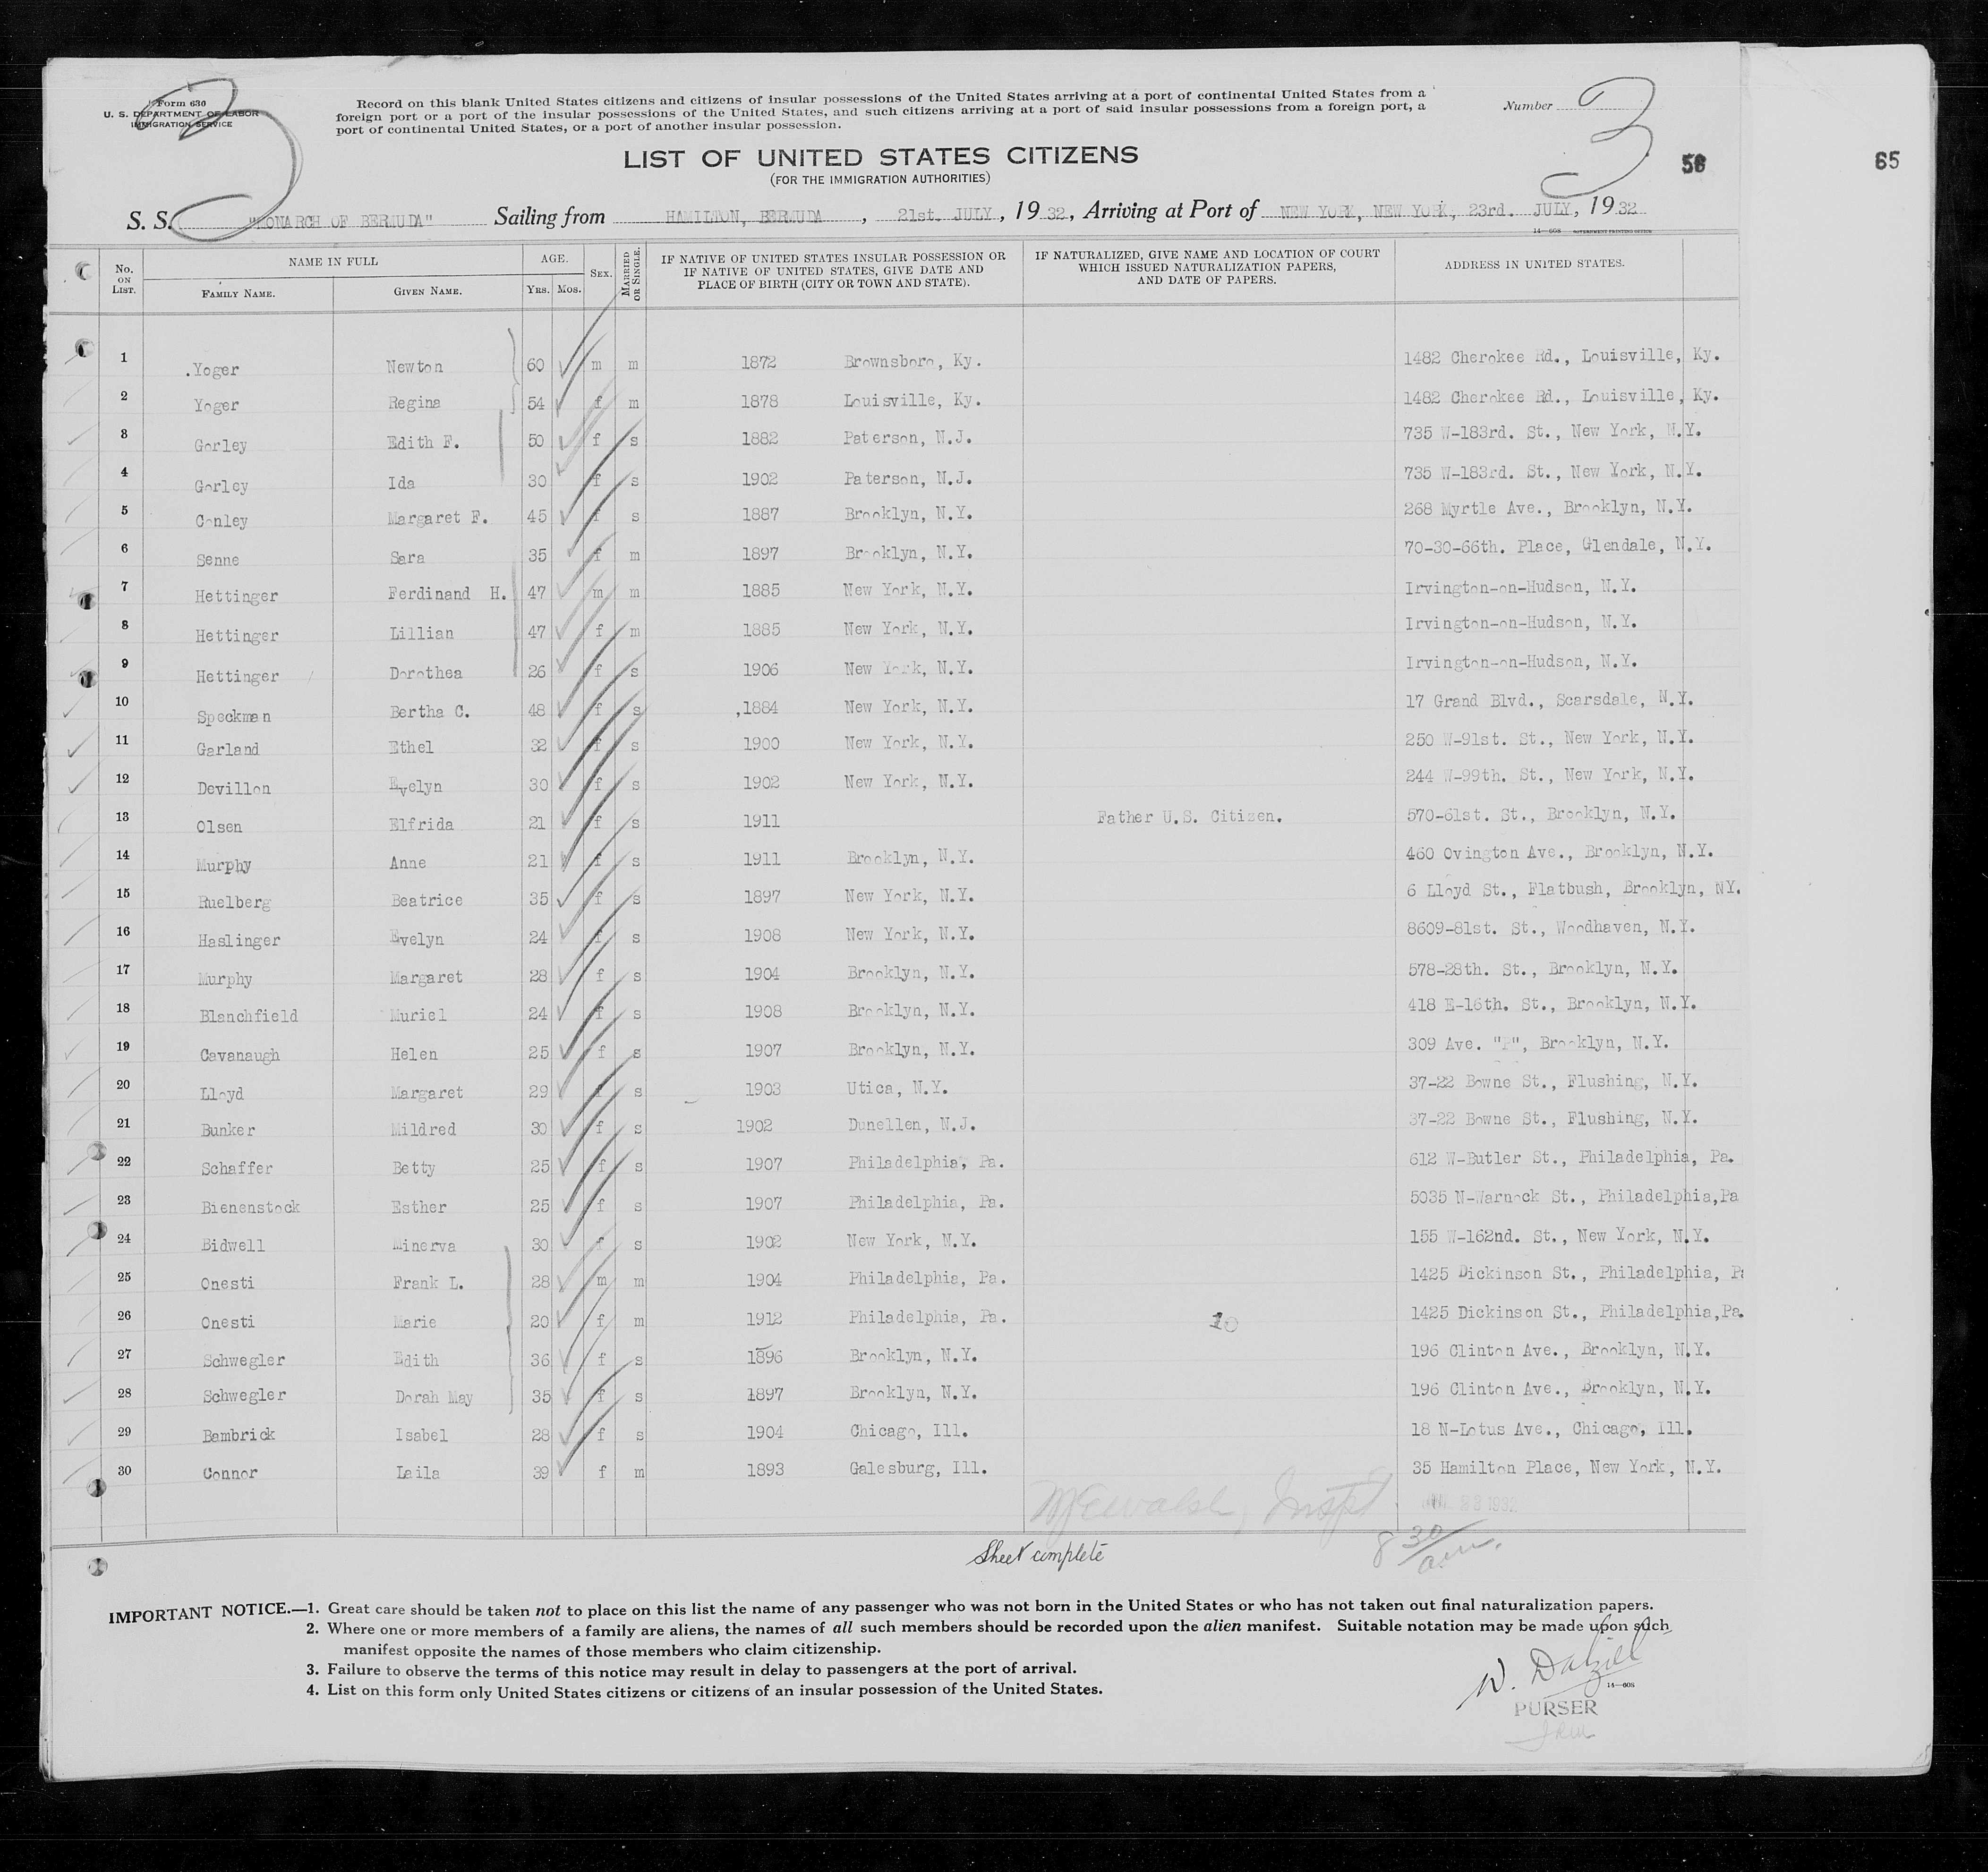 Form 630
U. S. DEPARTMENT OF LABOR
IMMIGRATION SERVICE
3
Record on this blank United States citizens and citizens of insular possessions of the United States arriving at a port of continental United States from a
foreign port or a port of the insular possessions of the United States, and such citizens arriving at a port of said insular possessions from a foreign port, a
port of continental United States, or a port of another insular possession.
Number
3
LIST OF UNITED STATES CITIZENS
(FOR THE IMMIGRATION AUTHORITIES)
56
65
S. S. "MONARCH OF BERMUDA" Sailing from HAMILTON, BERMUDA, 21st. JULY, 1932, Arriving at Port of NEW YORK, NEW YORK, 23rd. JULY, 1932
14—608 GOVERNMENT PRINTING OFFICE
No. ON LIST. NAME IN FULL FAMILY NAME. GIVEN NAME. AGE. YRS. MOS. SEX. MARRIED OR SINGLE. IF NATIVE OF UNITED STATES INSULAR POSSESSION OR IF NATIVE OF UNITED STATES, GIVE DATE AND PLACE OF BIRTH (CITY OR TOWN AND STATE). IF NATURALIZED, GIVE NAME AND LOCATION OF COURT WHICH ISSUED NATURALIZATION PAPERS, AND DATE OF PAPERS. ADDRESS IN UNITED STATES.
1 .Yoger Newton 60 m m 1872 Brownsboro, Ky. 1482 Cherokee Rd., Louisville, Ky.
2 Yoger Regina 54 f m 1878 Louisville, Ky. 1482 Cherokee Rd., Louisville, Ky.
3 Gorley Edith F. 50 f s 1882 Paterson, N.J. 735 W-183rd. St., New York, N.Y.
4 Gorley Ida 30 f s 1902 Paterson, N.J. 735 W-183rd. St., New York, N.Y.
5 Conley Margaret F. 45 f s 1887 Brooklyn, N.Y. 268 Myrtle Ave., Brooklyn, N.Y.
6 Senne Sara 35 f m 1897 Brooklyn, N.Y. 70-30-66th. Place, Glendale, N.Y.
7 Hettinger Ferdinand H. 47 m m 1885 New York, N.Y. Irvington-on-Hudson, N.Y.
8 Hettinger Lillian 47 f m 1885 New York, N.Y. Irvington-on-Hudson, N.Y.
9 Hettinger Dorothea 26 f s 1906 New York, N.Y. Irvington-on-Hudson, N.Y.
10 Speckman Bertha C. 48 f s ,1884 New York, N.Y. 17 Grand Blvd., Scarsdale, N.Y.
11 Garland Ethel 32 f s 1900 New York, N.Y. 250 W-91st. St., New York, N.Y.
12 Devillon Evelyn 30 f s 1902 New York, N.Y. 244 W-99th. St., New York, N.Y.
13 Olsen Elfrida 21 f s 1911 Father U.S. Citizen. 570-61st. St., Brooklyn, N.Y.
14 Murphy Anne 21 f s 1911 Brooklyn, N.Y. 460 Ovington Ave., Brooklyn, N.Y.
15 Ruelberg Beatrice 35 f s 1897 New York, N.Y. 6 Lloyd St., Flatbush, Brooklyn, NY.
16 Haslinger Evelyn 24 f s 1908 New York, N.Y. 8609-81st. St., Woodhaven, N.Y.
17 Murphy Margaret 28 f s 1904 Brooklyn, N.Y. 578-28th. St., Brooklyn, N.Y.
18 Blanchfield Muriel 24 f s 1908 Brooklyn, N.Y. 418 E-16th. St., Brooklyn, N.Y.
19 Cavanaugh Helen 25 f s 1907 Brooklyn, N.Y. 309 Ave. Brooklyn, N.Y.
20 Lloyd Margaret 29 f s 1903 Utica, N.Y. 37-22 Bowne St., Flushing, N.Y.
21 Bunker Mildred 30 f s 1902 Dunellen, N.J. 37-22 Bowne St., Flushing, N.Y.
22 Schaffer Betty 25 f s 1907 Philadelphia, Pa. 612 W-Butler St., Philadelphia, Pa.
23 Bienenstock Esther 25 f s 1907 Philadelphia, Pa. 5035 N-Warnock St., Philadelphia,Pa
24 Bidwell Minerva 30 f s 1902 New York, N.Y. 155 W-162nd. St., New York, N.Y.
25 Onesti Frank L. 28 m m 1904 Philadelphia, Pa. 1425 Dickinson St., Philadelphia, Pa
26 Onesti Marie 20 f m 1912 Philadelphia, Pa. 10 1425 Dickinson St., Philadelphia,Pa.
27 Schwegler Edith 36 f s 1896 Brooklyn, N.Y. 196 Clinton Ave., Brooklyn, N.Y.
28 Schwegler Dorah May 35 f s 1897 Brooklyn, N.Y. 196 Clinton Ave., Brooklyn, N.Y.
29 Bambrick Isabel 28 f s 1904 Chicago, Ill. 18 N-Lotus Ave., Chicago, Ill.
30 Connor Laila 39 f m 1893 Galesburg, Ill. 35 Hamilton Place, New York, N.Y.
McWalsh, Inspt. JUL 23 1932
Sheet complete 8 30/a.m.
IMPORTANT NOTICE.—1. Great care should be taken not to place on this list the name of any passenger who was not born in the United States or who has not taken out final naturalization papers.
2. Where one or more members of a family are aliens, the names of all such members should be recorded upon the alien manifest. Suitable notation may be made upon such
manifest opposite the names of those members who claim citizenship.
3. Failure to observe the terms of this notice may result in delay to passengers at the port of arrival.
4. List on this form only United States citizens or citizens of an insular possession of the United States.
W. Dalziel
14—608
PURSER